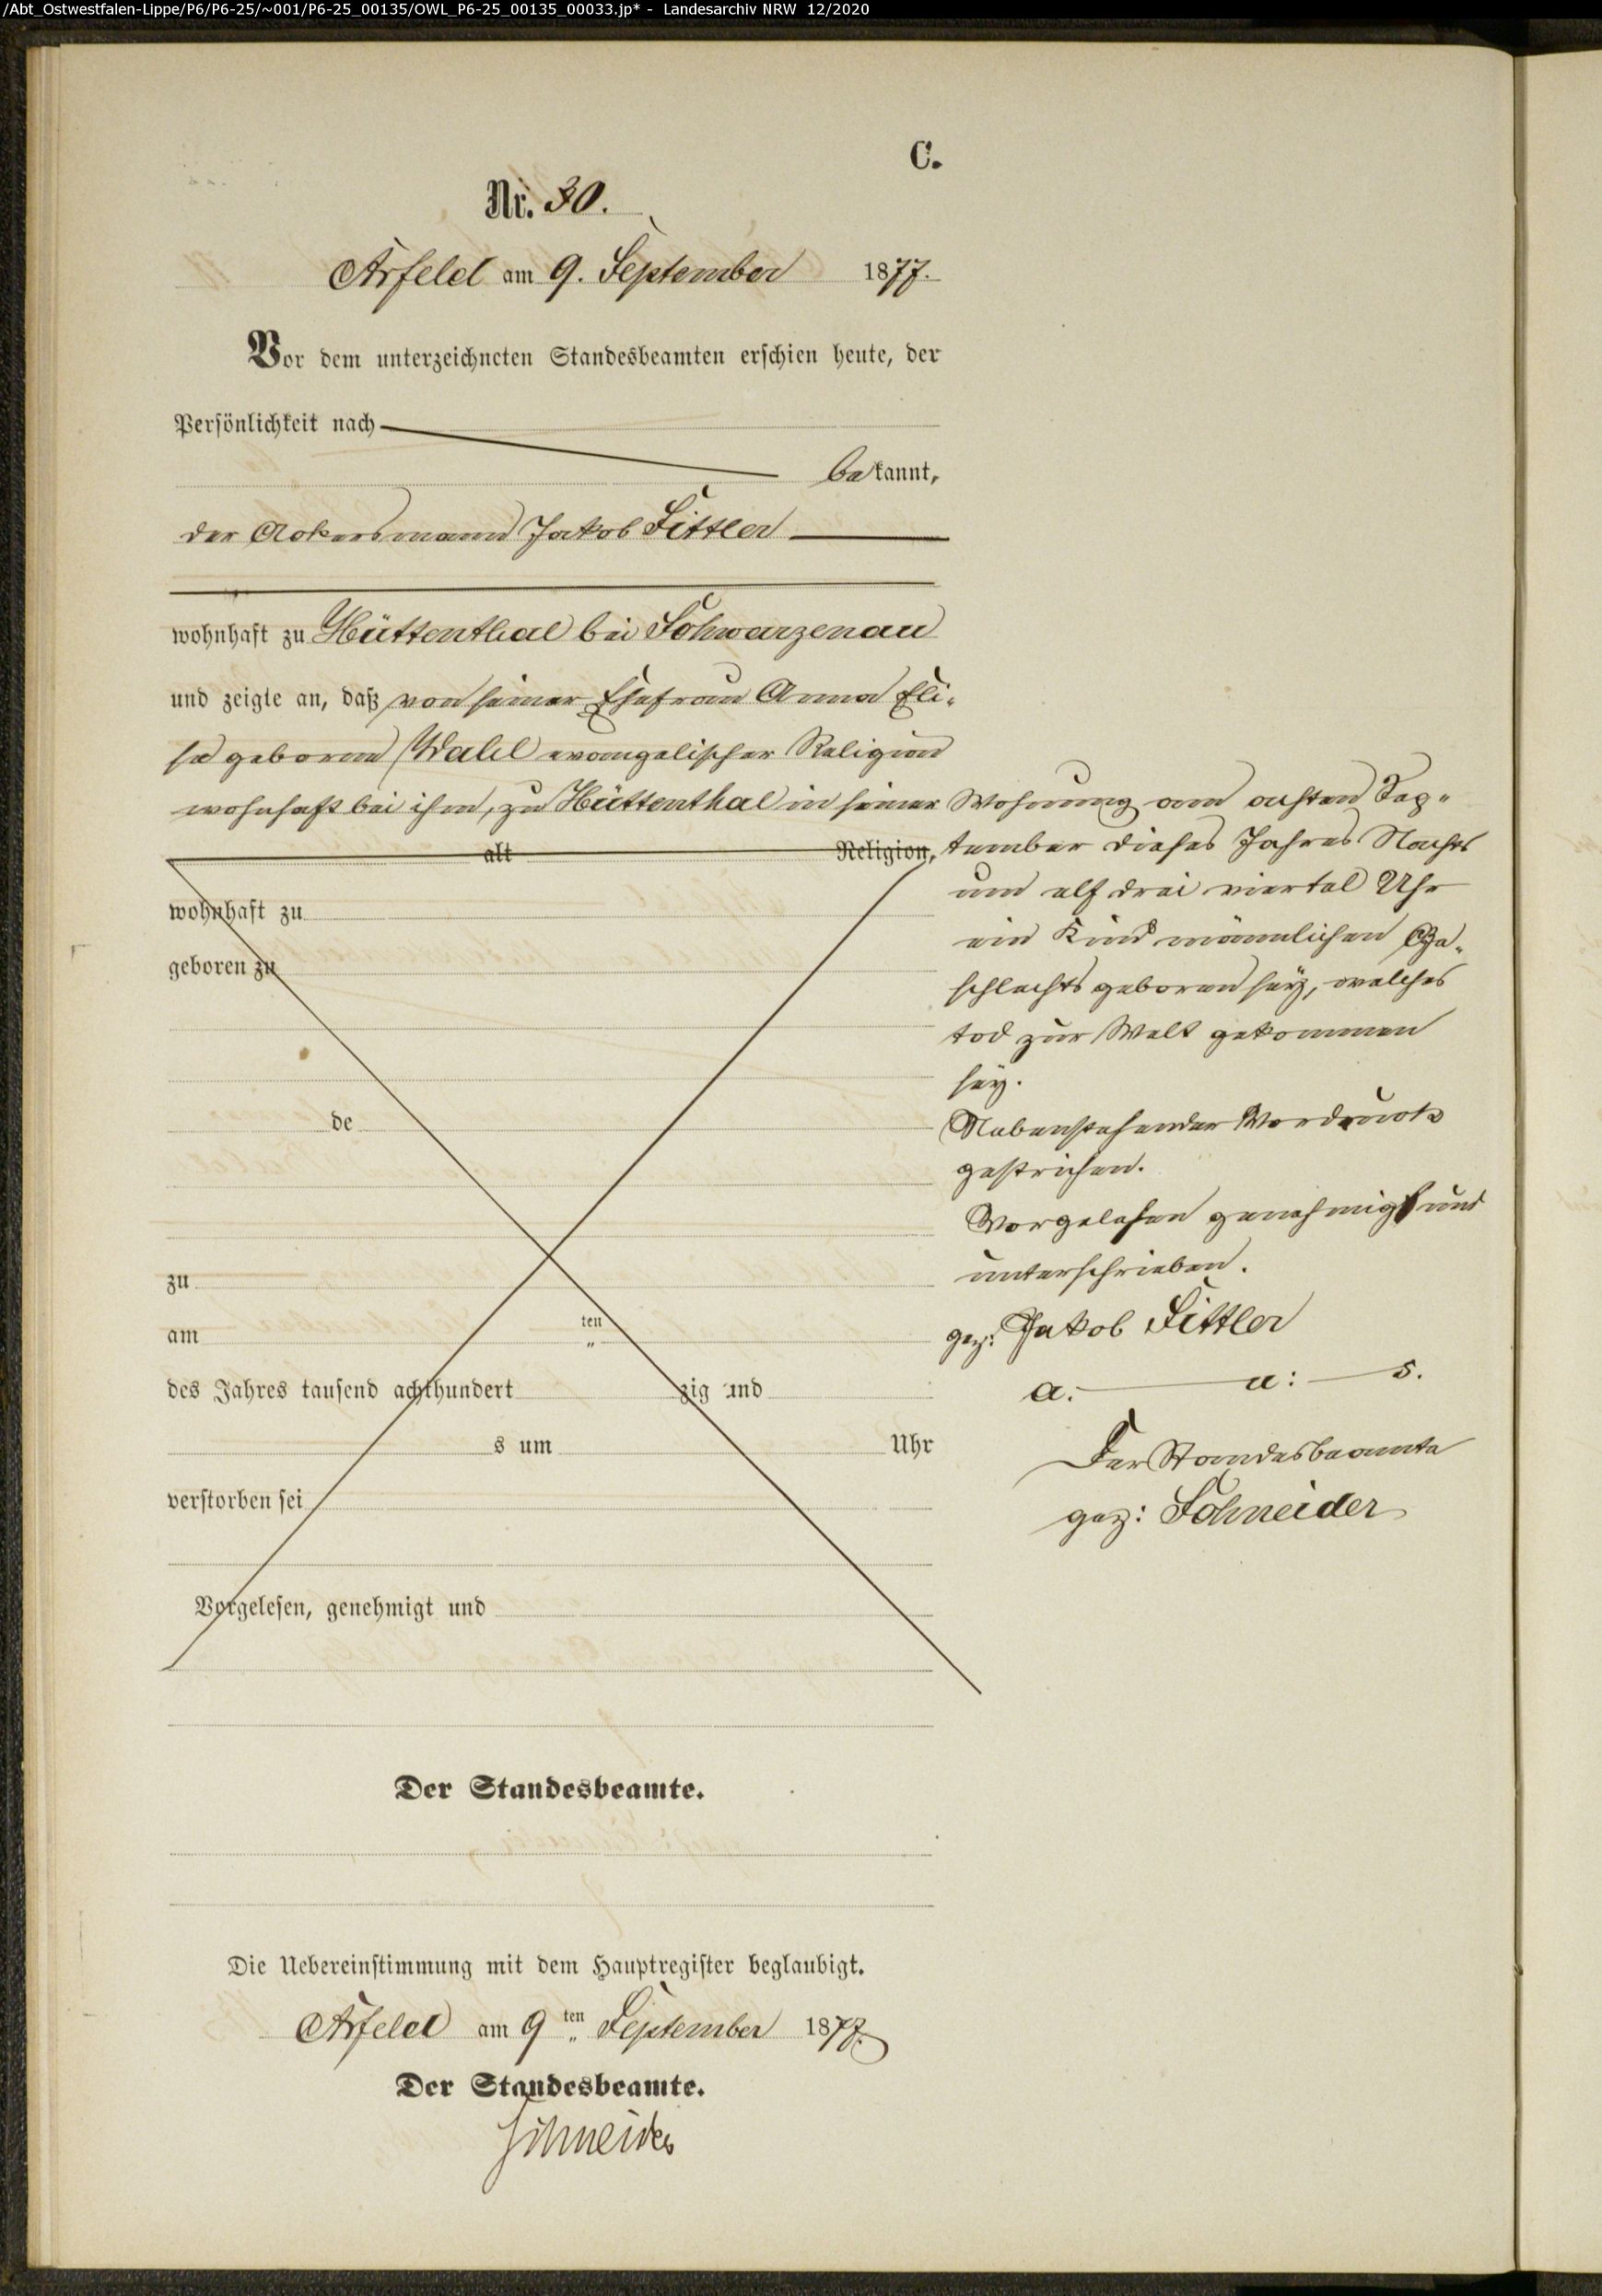 /Abt_Ostwestfalen-Lippe/P6/P6-25/~001/P6-25_00135/OWL_P6-25_00135_00033.jp* - Landesarchiv NRW 12/2020
C.
Nr. 30.
Arfeld am 9. September 1877.
Vor dem unterzeichneten Standesbeamten erschien heute, der
Persönlichkeit nach
bekannt,
der Ackersmann Jakob Sittler
wohnhaft zu Hüttenthal bei Schwarzenau
und zeigte an, daß von seiner Ehefrau Anna Eli-
se geborne Wahl evangelischer Religion
wohnhaft bei ihm, zu Hüttenthal in seiner Wohnung am achten Sep-
alt Religion, tember dieses Jahres Nachts
um elf drei viertel Uhr
wohnhaft zu
ein Kind männlichen Ge-
geboren zu
schlechts geboren sey, welches
tod zur Welt gekommen
sey.
de
Nebenstehender Vordruck
gestrichen.
Vorgelesen genehmigt und
unterschrieben.
zu
am ten
gez: Jakob Sittler
des Jahres tausend achthundert zig und
a. u: s.
s um Uhr
Der Standesbeamte
verstorben sei
gez: Schneider
Vorgelesen, genehmigt und
Der Standesbeamte.
Die Uebereinstimmung mit dem Hauptregister beglaubigt.
Arfeld am 9 ten September 1877.
Der Standesbeamte.
Schneider